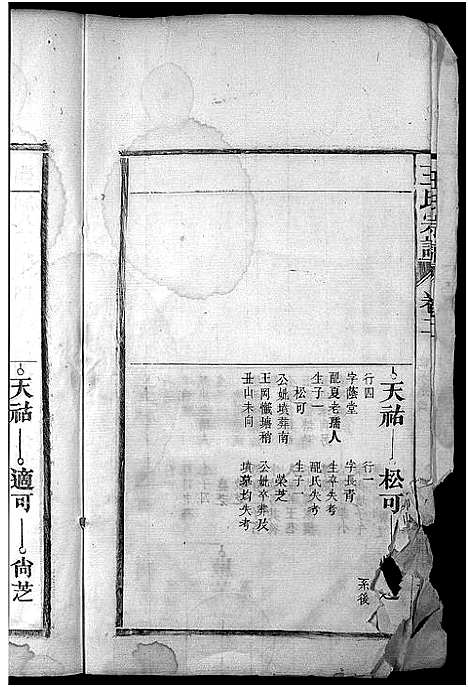 王氏宗譜
卷二
天祐 松可
行四
字蔭堂
配夏老孺人
生子一
松可
公妣墳葬南
王岡懺塘稍
丑山未向
行一
字長青
生卒失考
配氏失考
生子一
榮芝
公妣卒葬及
墳墓均失考
系後
天祐 適可 尙芝